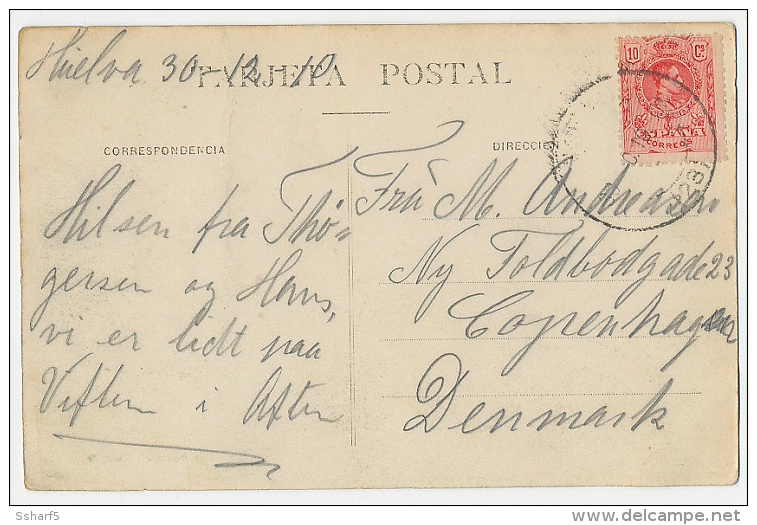 Huelva 30-12-10
TARJETA POSTAL
10 Cs
CORREOS
CORRESPONDENCIA
DIRECCIÓ
Hilsen fra Thö=
gersen og Hans,
vi er lidt paa
Viften i Aften
Frü M. Andreasen
Ny Toldbodgade 23
Copenhagen
Denmark
Ssharf5
www.delcampe.net